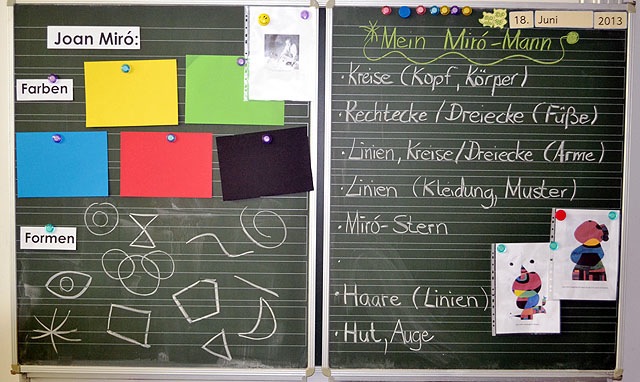 Joan Miró:
Farben
Formen
18. Juni 2013
*Mein Miró-Mann*
· Kreise (Kopf, Körper)
· Rechtecke/Dreiecke (Füße)
· Linien, Kreise/Dreiecke (Arme)
· Linien (Kleidung, Muster)
· Miró-Stern
·
· Haare (Linien)
· Hut, Auge